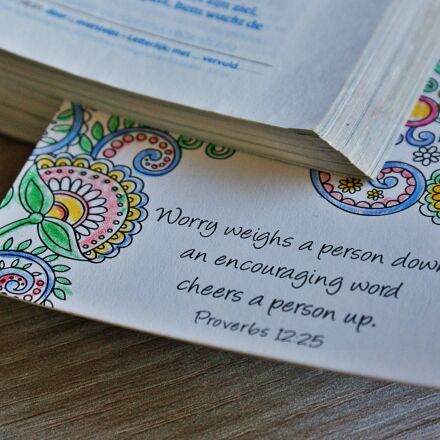 zijn ziel,
hem wacht de
door... - Letterlijk: met ... vervuld.
Worry weighs a person down
an encouraging word
cheers a person up.
Proverbs 12:25